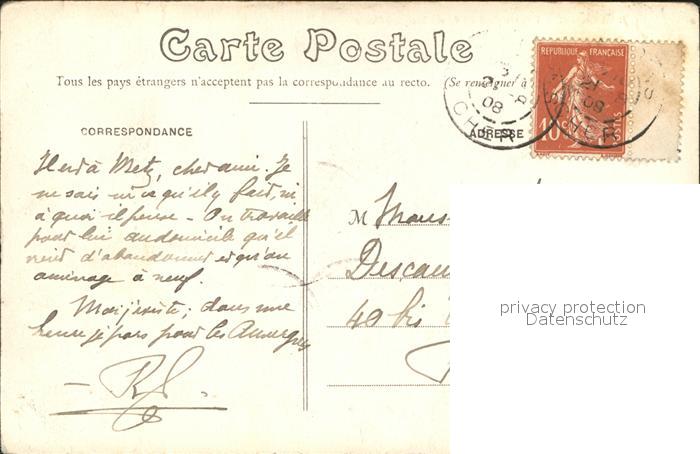 Carte Postale
Tous les pays étrangers n'acceptent pas la correspondance au recto. (Se renseigner à
REPUBLIQUE FRANÇAISE
10
POSTES
08
CHER
08
CHER
CORRESPONDANCE
ADRESSE
Il est à Metz, cher ami. Je
ne sais ni ce qu'il y fait, ni
à quoi il pense - On travaille
pour lui au domicile qu'il
vient d'abandonner et qu'on
aménage à neuf.
Moi, j'existe; dans une
heure je pars pour les Auvergnes
M Mons
Descau
40 bis
privacy protection
Datenschutz